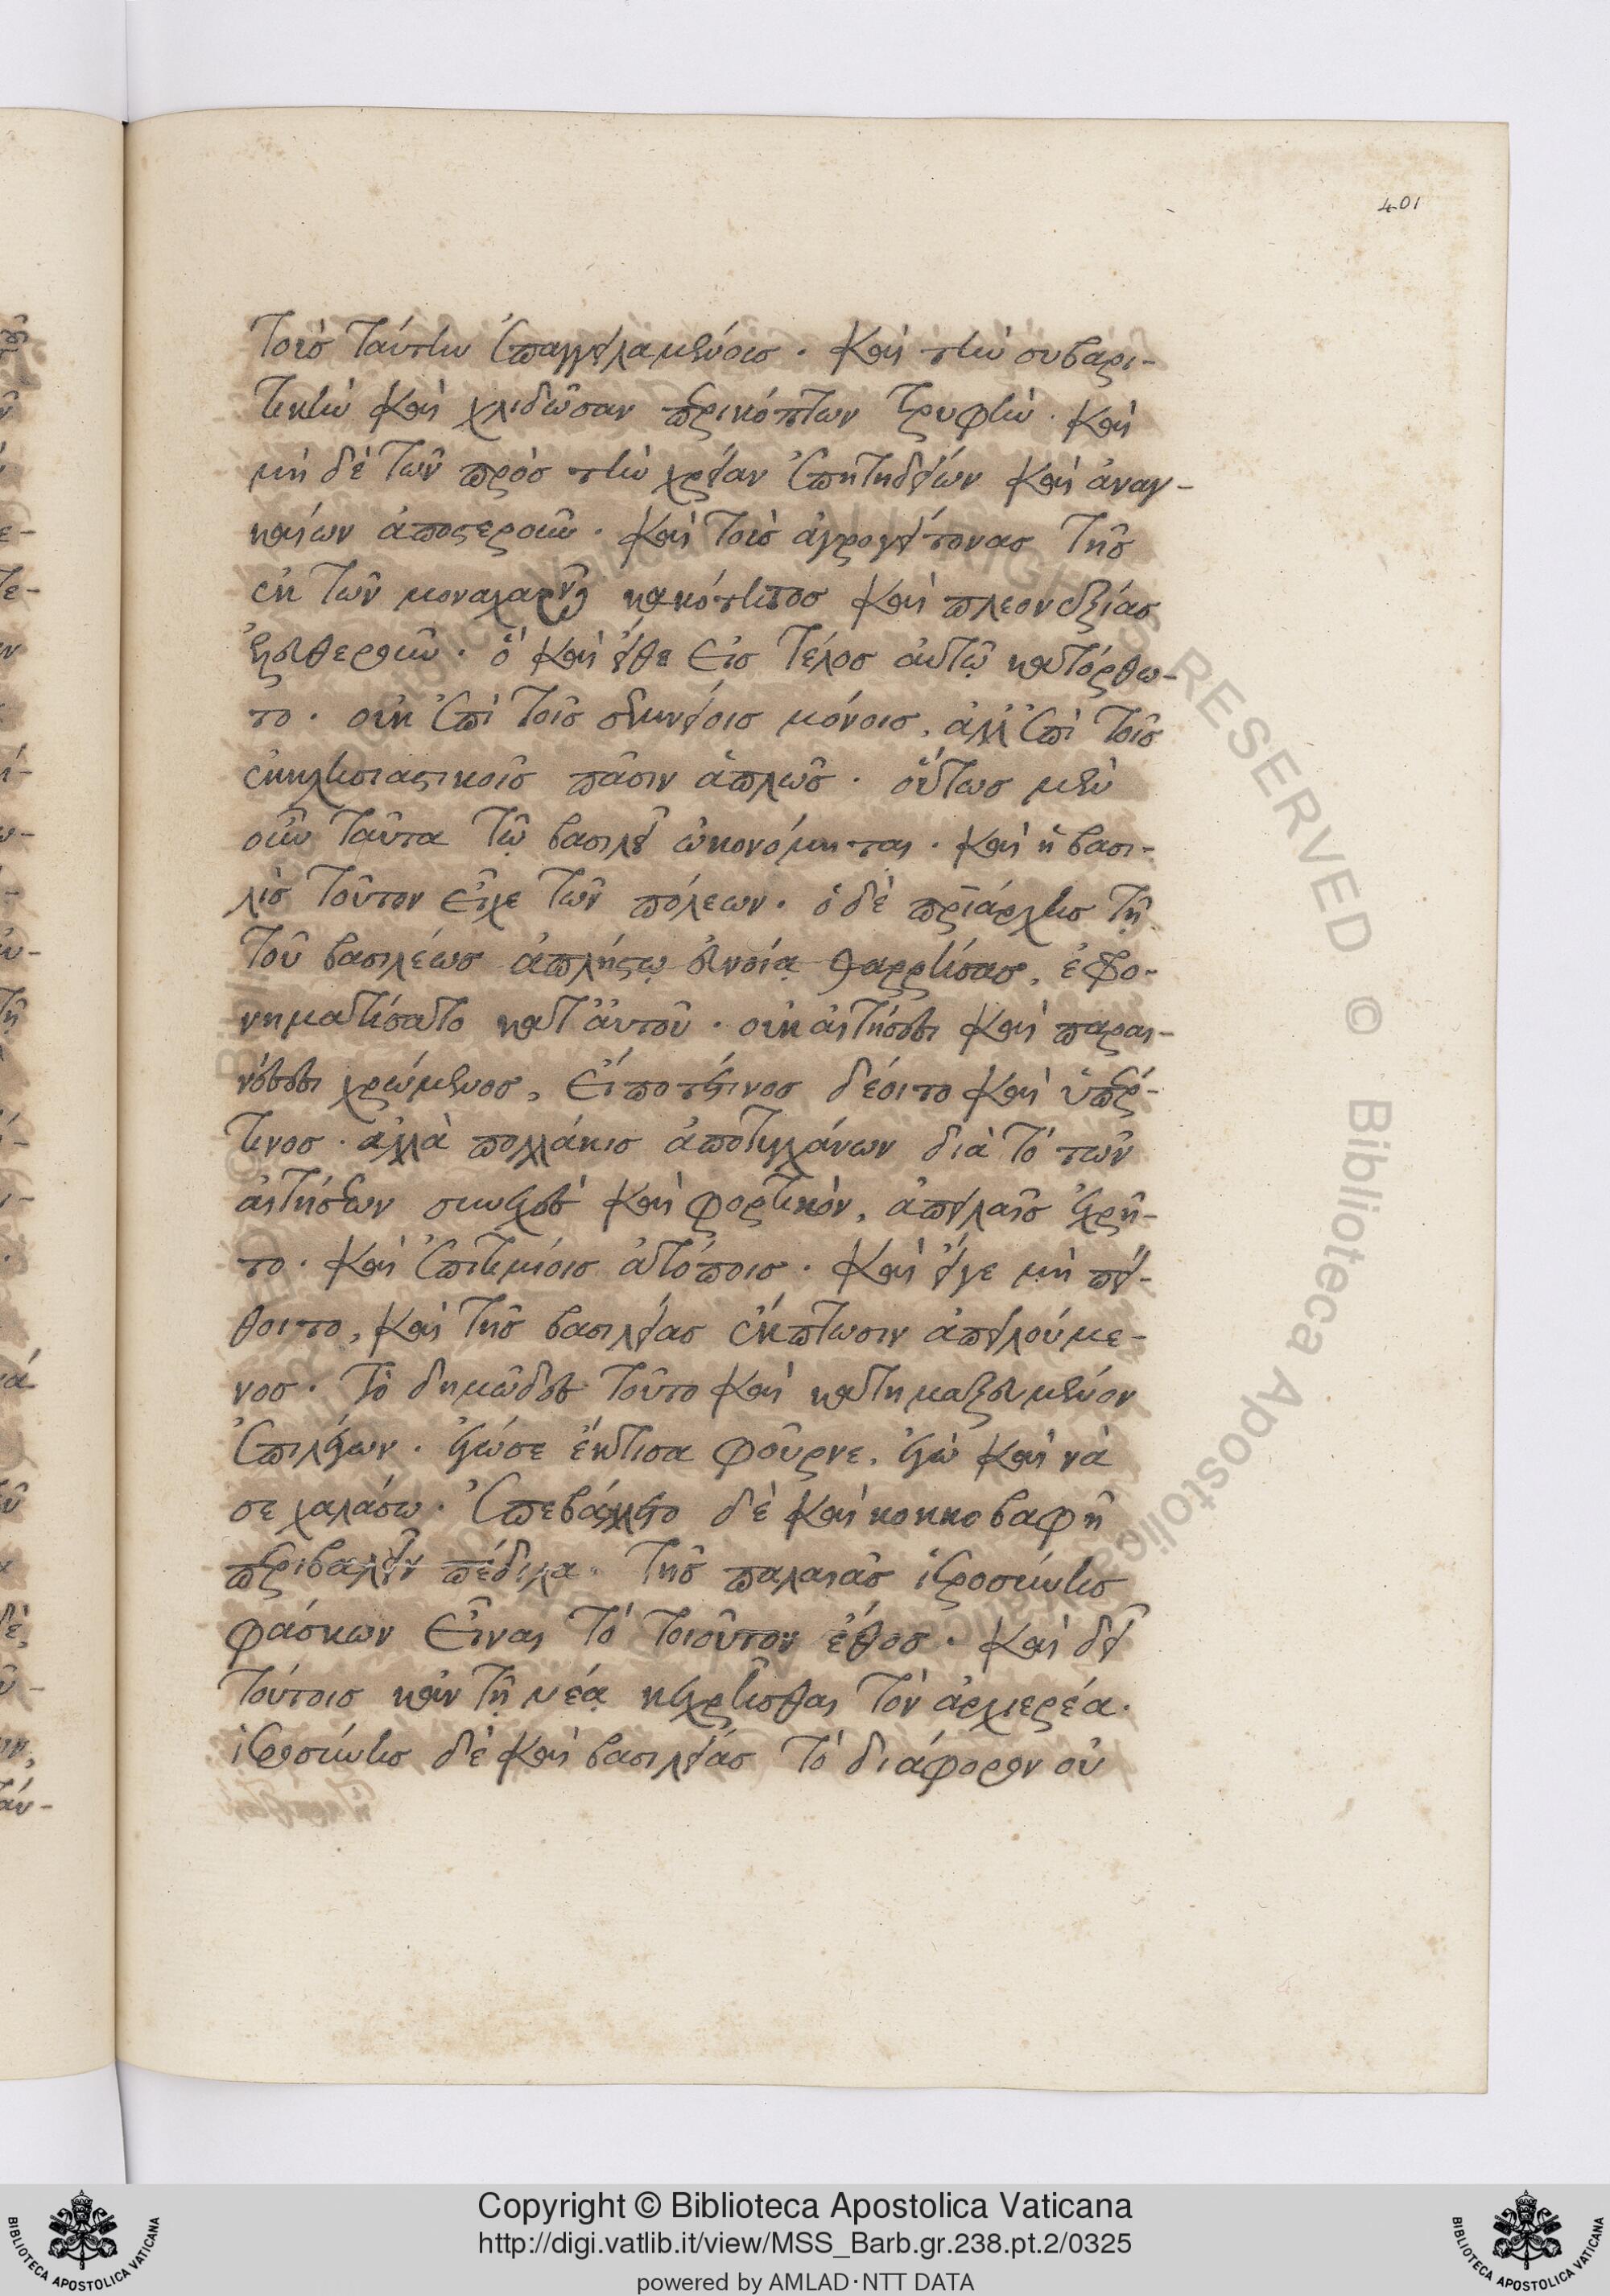 401
τοὺς ταύτην ἐπαγγειλαμένους. καὶ τὴν συβαρι-
τικὴν καὶ χλιδῶσαν περικόπτων τρυφὴν. καὶ
μὴ δὲ τῶν πρὸς τὴν χρείαν ἐπιτηδείων καὶ ἀναγ-
καίων ἀποστεροῦν. καὶ τοὺς ἀγρογείτονας τῆς
ἐκ τῶν μοναχῶν κακότητος καὶ πλεονεξίας
ἐξελθεροῦν. ὃ καὶ εἴθε εἰς τέλος αὐτῷ κατόρθω-
το. οὐκ ἐπὶ τοῖς σεμνείοις μόνοις, ἀλλ' ἐπὶ τοῖς
ἐκκλησιαστικοῖς πᾶσιν ἁπλῶς. οὕτως μὲν
οὖν ταῦτα τῷ βασιλεῖ ὠκονόμηται. καὶ ἡ βασι-
λὶς τοῦτον εἶχε τῶν πόλεων. ὁ δὲ πριάρχης τῇ
τοῦ βασιλέως ἀπλήστῳ εὐνοίᾳ θαρρήσας, ἐφρο-
νηματίσατο κατ' αὐτοῦ. οὐκ αἰτήσεσι καὶ παραι-
νέσεσι χρώμενος, εἴποτέ τινος δέοιτο καὶ ὑπέρ
τινος. ἀλλὰ πολλάκις ἀποτυγχάνων διὰ τὸ τῶν
αἰτήσεων συνεχὲς καὶ φορτικὸν, ἀπειλαῖς ἐχρῆ-
το. καὶ ἐπιτιμίοις ἀτόποις. καὶ εἴγε μὴ πεί-
θοιτο, καὶ τῆς βασιλείας ἔκπτωσιν ἀπειλούμε-
νος. τὸ δημῶδες τοῦτο καὶ κατημαξευμένον
ἐπιλέγων. ἐγώσε ἔκτισα φοῦρνε, ἐγὼ καὶ νὰ
σε χαλάσω. ἐπεβάλλετο δὲ καὶ κοκκοβαφῆ
περιβαλεῖν πέδιλα. τῆς παλαιᾶς ἱεροσύνης
φάσκων εἶναι τὸ τοιοῦτον ἔθος. καὶ δεῖ
τούτοις κἀν τῇ νέᾳ κεχρῆσθαι τὸν ἀρχιερέα.
ἱεροσύνης δὲ καὶ βασιλείας τὸ διάφορον οὐ
Copyright © Biblioteca Apostolica Vaticana
http://digi.vatlib.it/view/MSS_Barb.gr.238.pt.2/0325
powered by AMLAD·NTT DATA
BIBLIOTECA APOSTOLICA VATICANA
BIBLIOTECA APOSTOLICA VATICANA